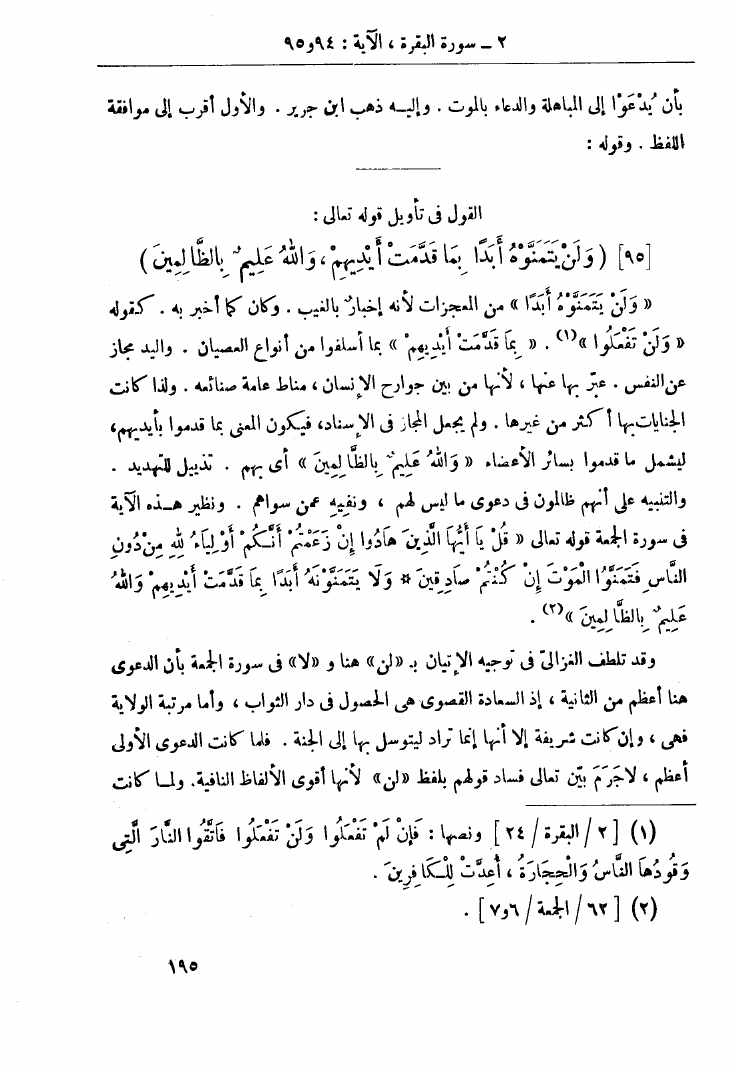 ٢ ـ سورة البقرة ، الآية : ٩٤و٩٥
بأن يُدْعَوْا إلى المباهلة والدعاء بالموت . وإليه ذهب ابن جرير . والأول أقرب إلى موافقة
اللفظ . وقوله :
القول فى تأويل قوله تعالى :
[٩٥] ( وَلَنْ يَتَمَنَّوْهُ أَبَدًا بِمَا قَدَّمَتْ أَيْدِيهِمْ ، وَاللهُ عَلِيمٌ بِالظَّالِمِينَ )
« وَلَنْ يَتَمَنَّوْهُ أَبَدًا » من المعجزات لأنه إخبارٌ بالغيب . وكان كما أخبر به . كقوله
« وَلَنْ تَفْعَلُوا »(١) . « بِمَا قَدَّمَتْ أَيْدِيهِمْ » بما أسلفوا من أنواع العصيان . واليد مجاز
عن النفس . عبّر بها عنها ، لأنها من بين جوارح الإنسان ، مناط عامة صنائعه . ولذا كانت
الجنايات بها أكثر من غيرها . ولم يجعل المجاز فى الإسناد، فيكون المعنى بما قدموا بأيديهم،
ليشمل ما قدموا بسائر الأعضاء « وَاللهُ عَلِيمٌ بِالظَّالِمِينَ » أى بهم . تذييل للتهديد .
والتنبيه على أنهم ظالمون فى دعوى ما ليس لهم ، ونفيهِ عمن سواهم . ونظير هذه الآية
فى سورة الجمعة قوله تعالى « قُلْ يَا أَيُّهَا الَّذِينَ هَادُوا إِنْ زَعَمْتُمْ أَنَّكُمْ أَوْلِيَاءُ لِلهِ مِنْ دُونِ
النَّاسِ فَتَمَنَّوُا الْمَوْتَ إِنْ كُنْتُمْ صَادِقِينَ * وَلَا يَتَمَنَّوْنَهُ أَبَدًا بِمَا قَدَّمَتْ أَيْدِيهِمْ وَاللهُ
عَلِيمٌ بِالظَّالِمِينَ »(٢) .
وقد تلطف الغزالىّ فى توجيه الإتيان بـ «لن» هنا و «لا» فى سورة الجمعة بأن الدعوى
هنا أعظم من الثانية ، إذ السعادة القصوى هى الحصول فى دار الثواب ، وأما مرتبة الولاية
فهى ، وإن كانت شريفة إلا أنها إنما تراد ليتوسل بها إلى الجنة . فلما كانت الدعوى الأولى
أعظم ، لاجَرَمَ بيّن تعالى فساد قولهم بلفظ «لن» لأنها أقوى الألفاظ النافية. ولما كانت
(١) [ ٢ / البقرة / ٢٤ ] ونصها : فَإِنْ لَمْ تَفْعَلُوا وَلَنْ تَفْعَلُوا فَاتَّقُوا النَّارَ الَّتِى
وَقُودُهَا النَّاسُ وَالْحِجَارَةُ ، أُعِدَّتْ لِلْكَافِرِينَ .
(٢) [ ٦٢ / الجمعة / ٦و٧ ] .
١٩٥